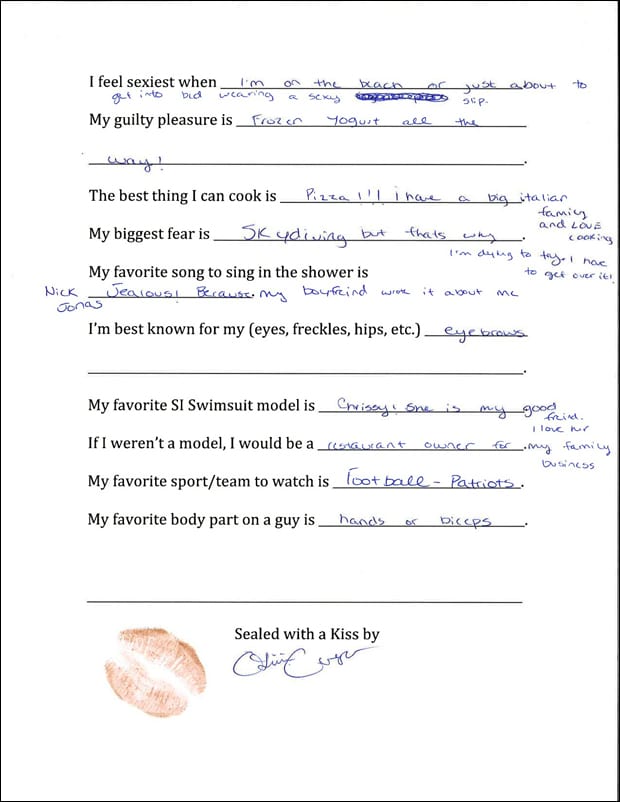 I feel sexiest when I'm on the beach or just about to
get into bed wearing a sexy slip.
My guilty pleasure is Frozen Yogurt all the
way! .
The best thing I can cook is Pizza!!! i have a big italian
family
and LOVE
cooking
My biggest fear is SKydiving but thats why .
I'm dying to try. I have
to get over it!
My favorite song to sing in the shower is
Nick Jonas
Jealous! Because my boyfreind wrote it about me
I'm best known for my (eyes, freckles, hips, etc.) eyebrows
.
My favorite SI Swimsuit model is Chrissy! she is my good
freind.
I love her
If I weren't a model, I would be a restaurant owner for my family
business
My favorite sport/team to watch is Football - Patriots.
My favorite body part on a guy is hands or biceps.
Sealed with a Kiss by